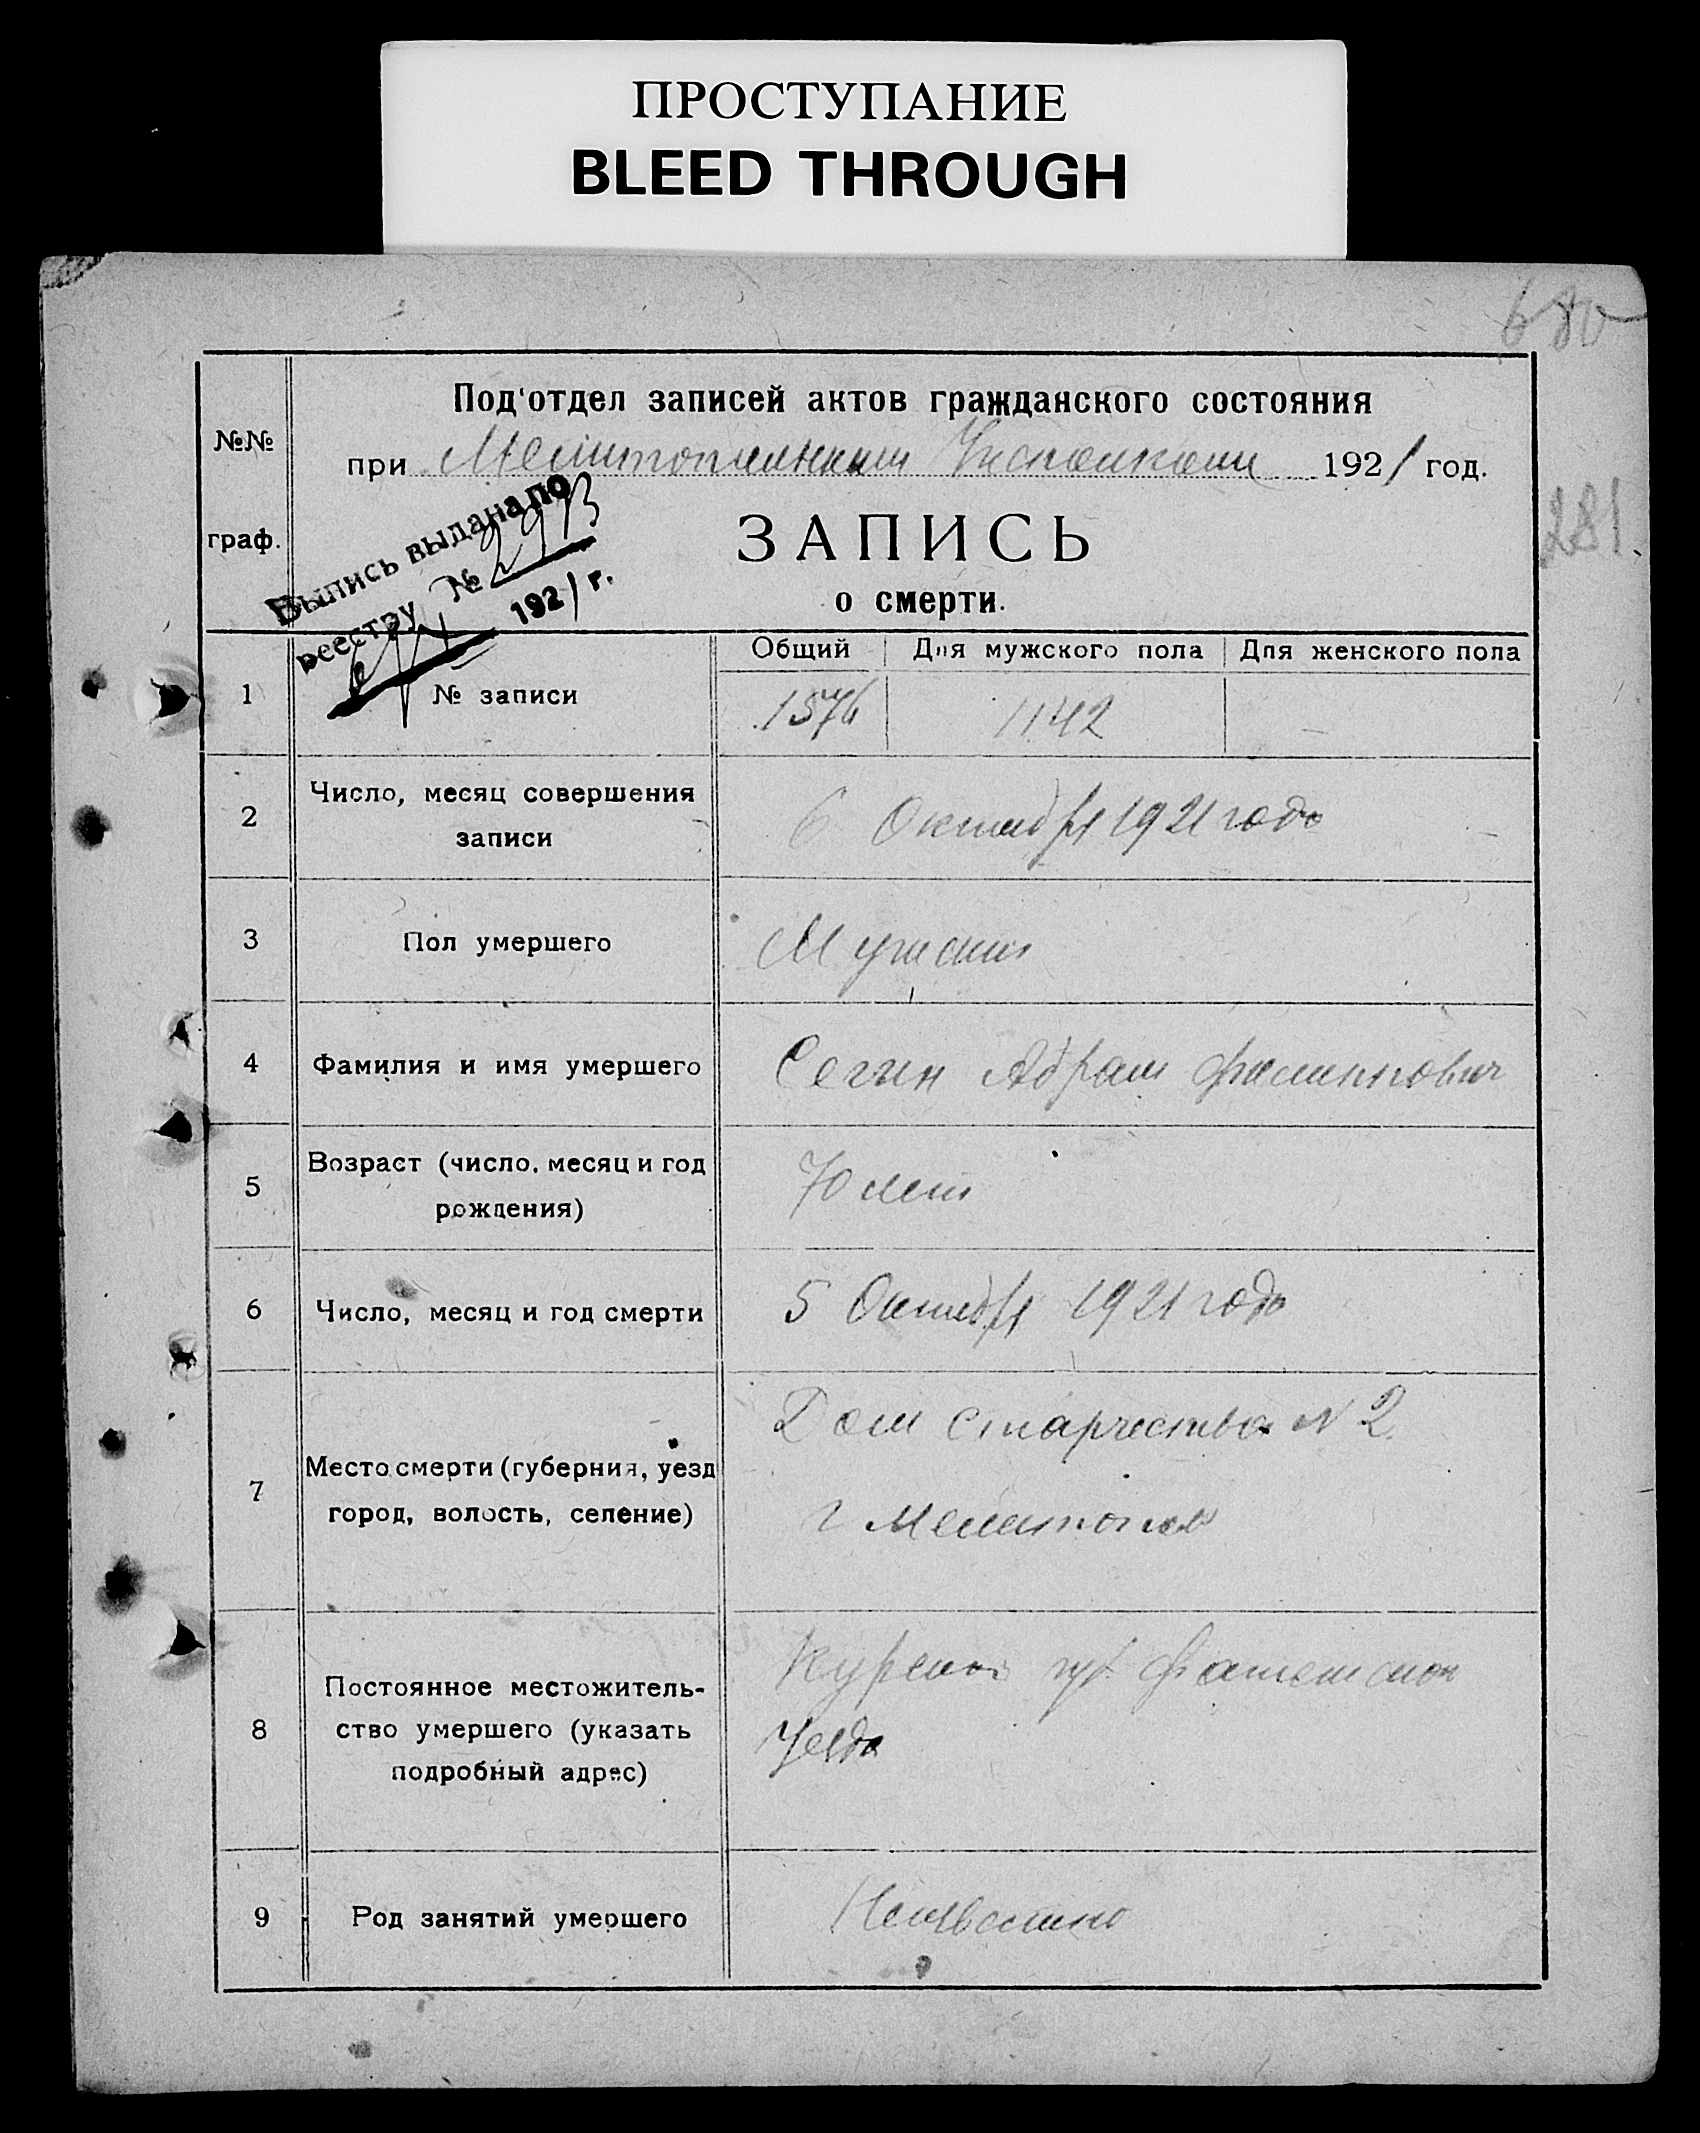 ПРОСТУПАНИЕ
BLEED THROUGH
680
281.
№№
граф.
Под'отдел записей актов гражданского состояния
при Мелитопольском Уисполкоме 1921 год.
Выпись выдана по
реестру № 2993
192/г.
ЗАПИСЬ
о смерти.
Общий Для мужского пола Для женского пола
1 № записи 1576 1142 –
2 Число, месяц совершения
записи
6 Октября 1921 года
3 Пол умершего Мужской
4 Фамилия и имя умершего Сегин Абрам Филиппович
5 Возраст (число, месяц и год
рождения)
70 лет
6 Число, месяц и год смерти 5 Октября 1921 года
7 Место смерти (губерния, уезд
город, волость, селение)
Дом старчества N 2.
г Мелитополь
8 Постоянное местожитель-
ство умершего (указать
подробный адрес)
Курской губ Фатежской
Уезда
9 Род занятий умершего Неизвестно